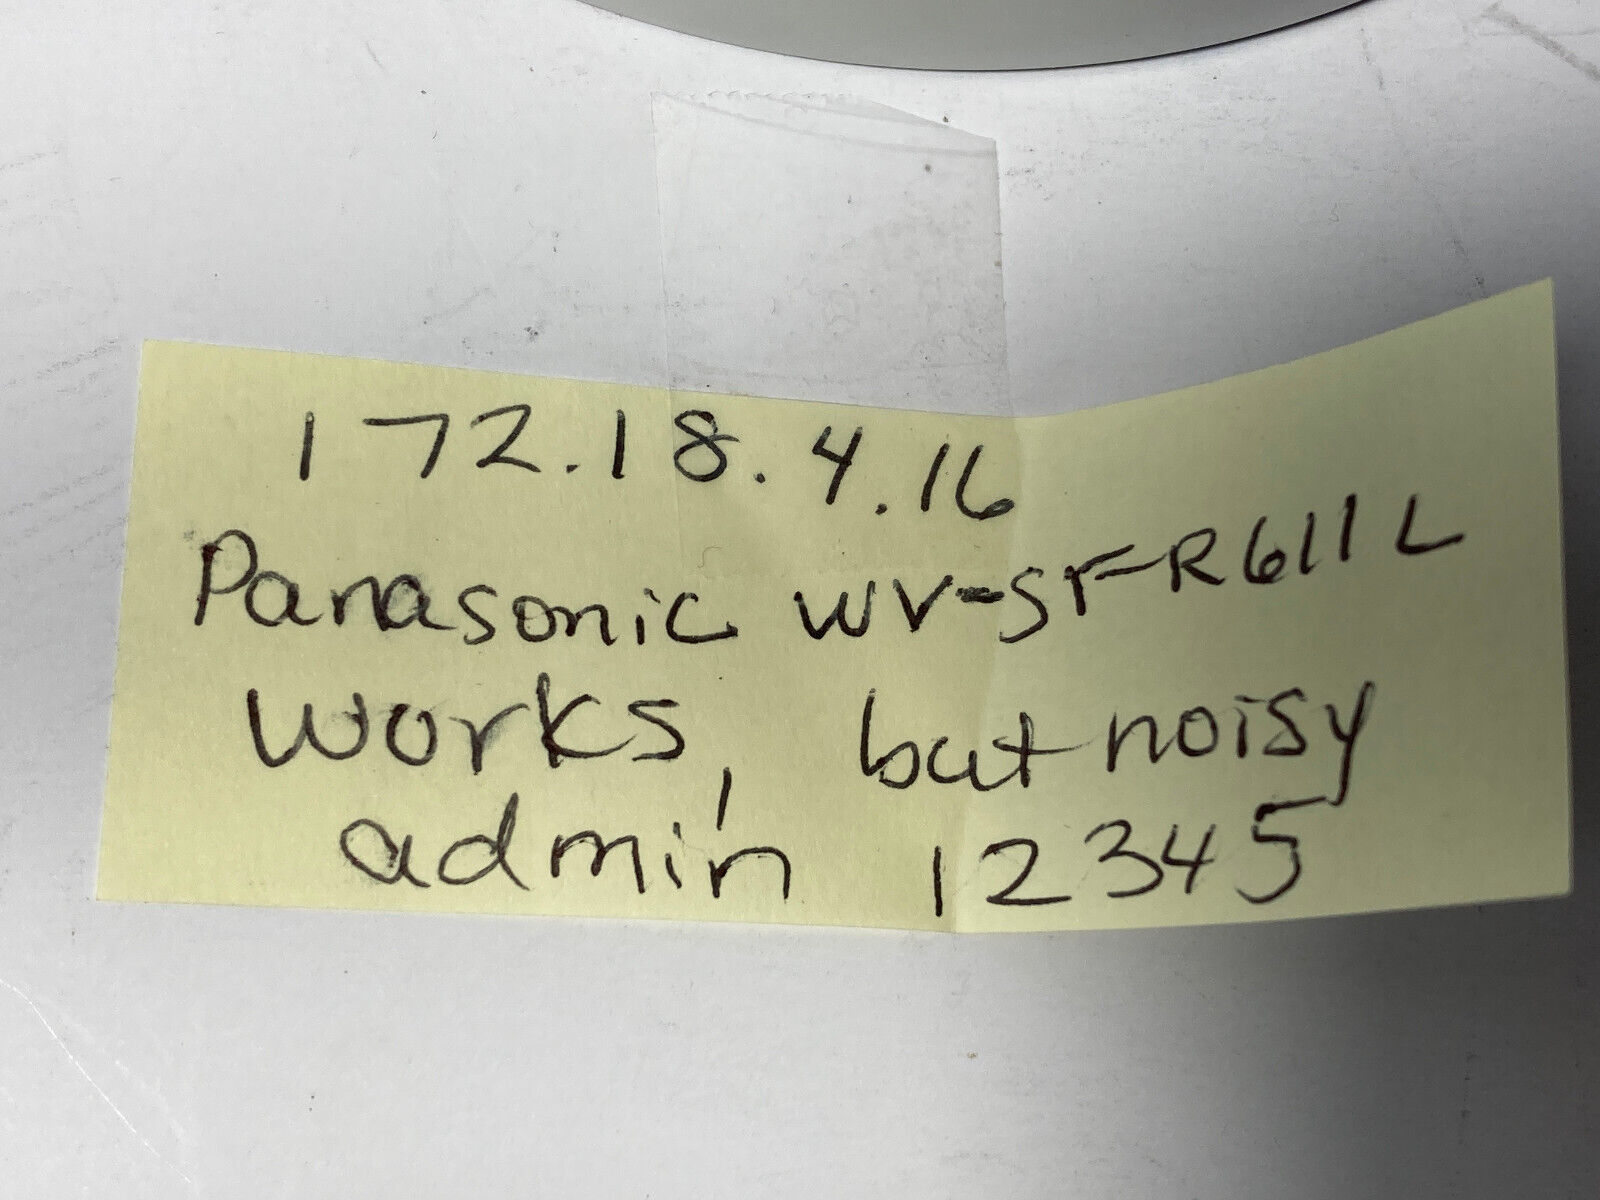 172.18.4.16
Panasonic WV-SF-R611L
works, but noisy
admin 12345